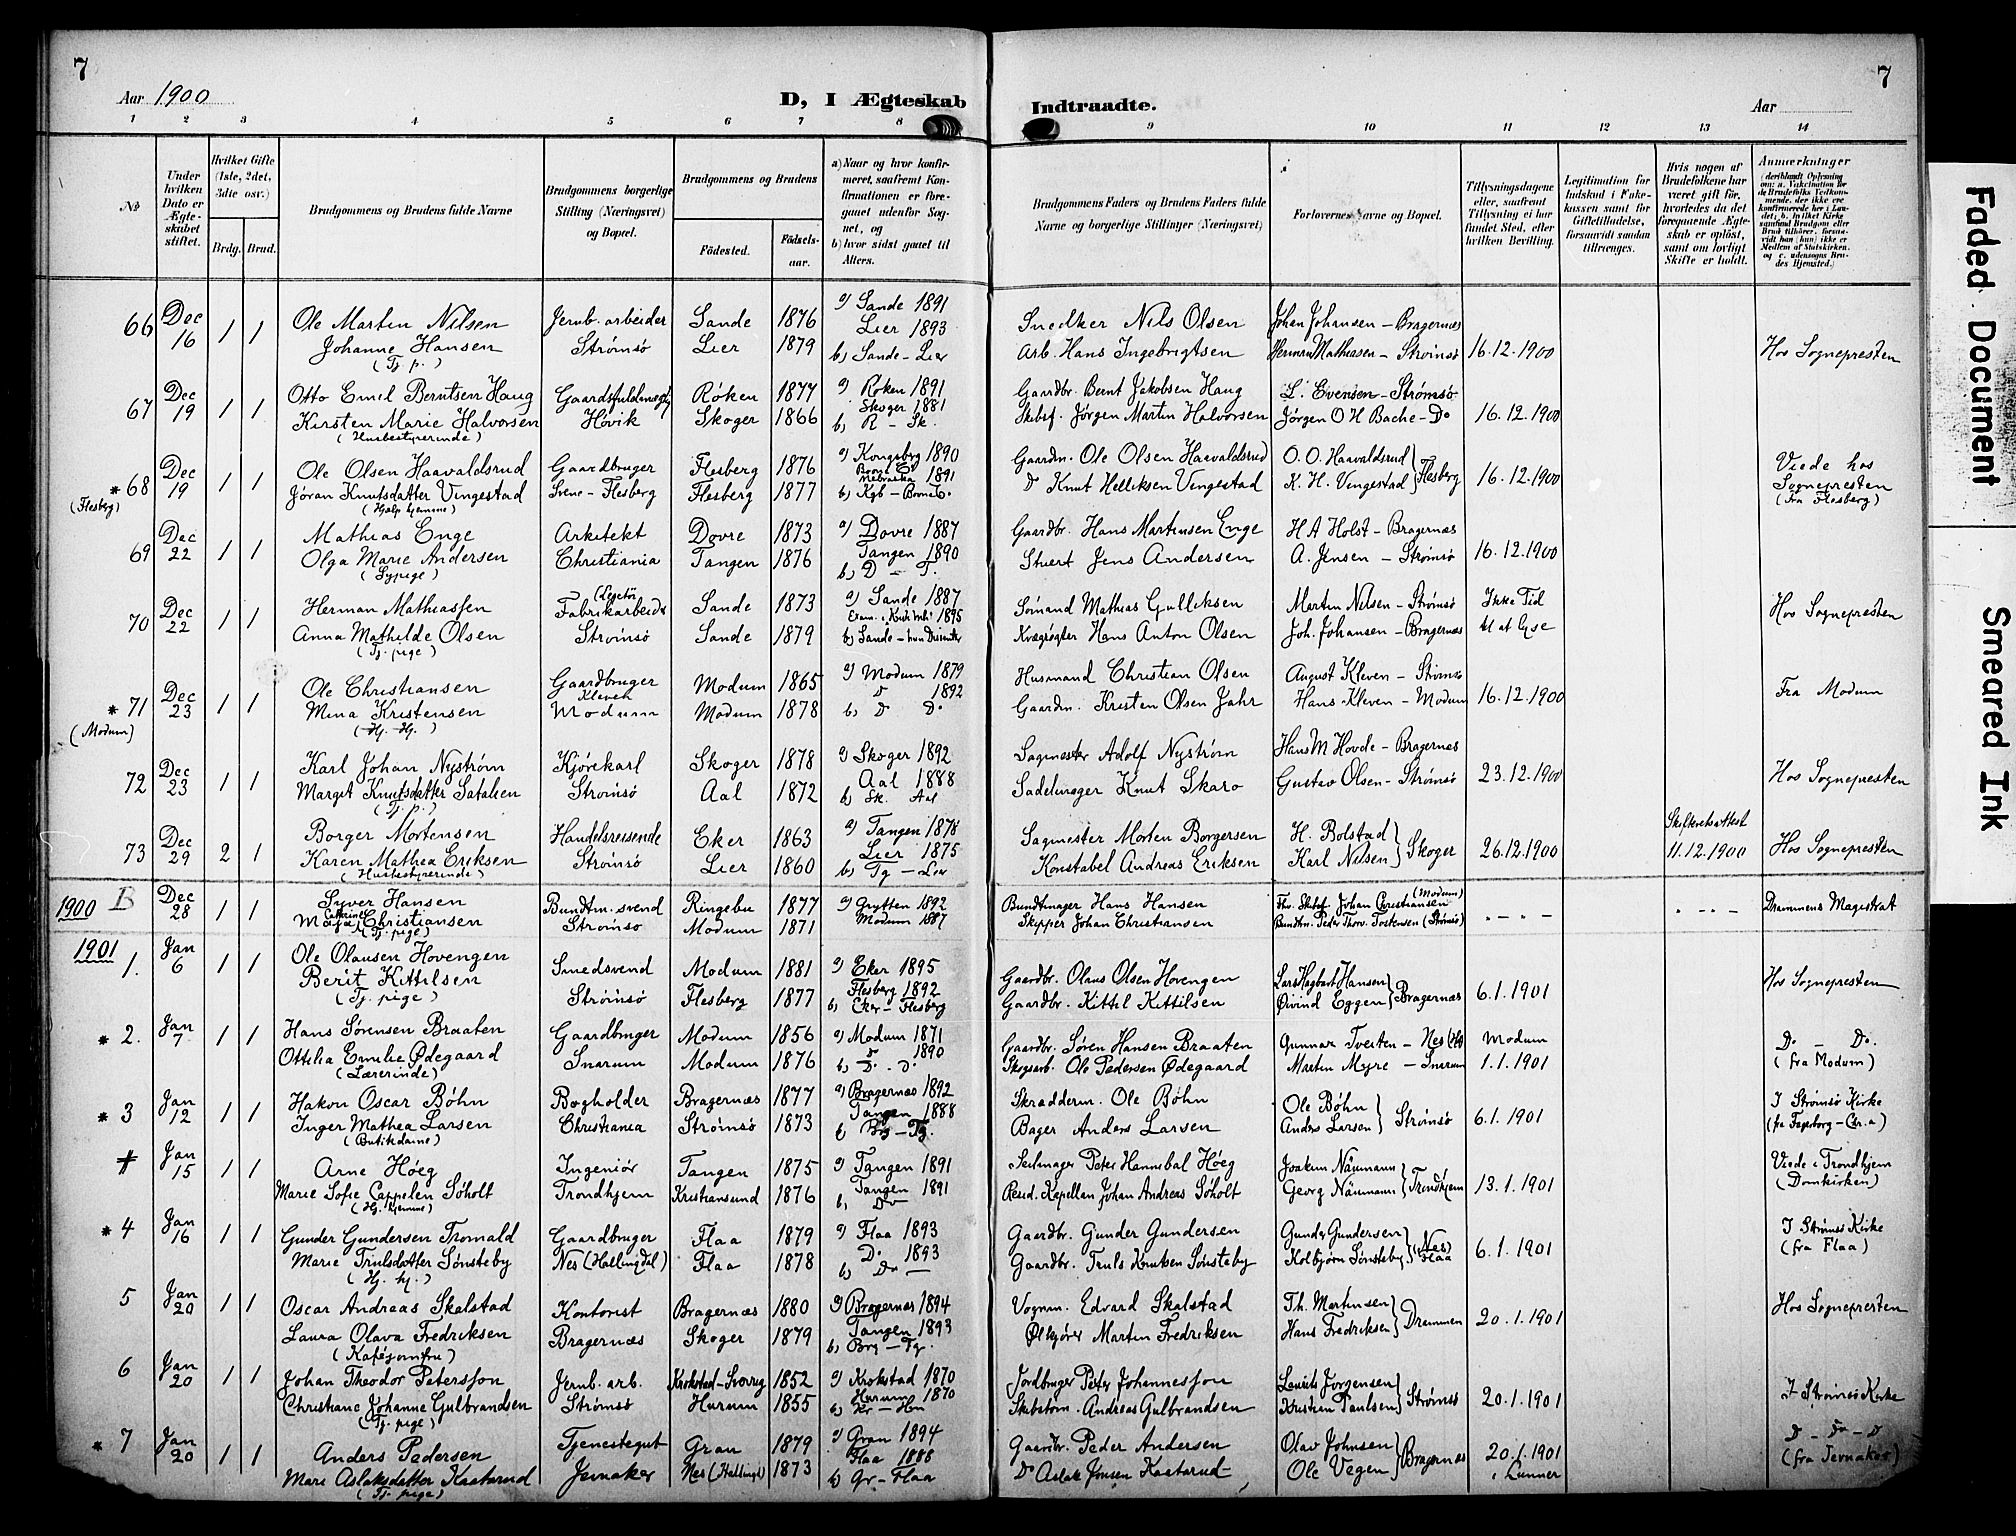 7
Aar 1900
D, I Ægteskab
1 2 3 4 5 6 7 8
No
Under hvilken Dato er Ægteskabet stiftet.
Hvilket Gifte (1ste, 2det, 3die osv.)
Brdg. Brud.
Brudgommens og Brudens fulde Navne
Brudgommens borgerlige Stilling (Næringsvei) og Bopæl.
Brudgommens og Brudens
Födested. Födselsaar.
a) Naar og hvor konfirmeret, saafremt Konfirmationen er foregaaet udenfor Sognet, og
b) hvor sidst gaaet til Alters.
66 Dec 16 1 1 Ole Martin Nilsen Jernb. arbeider Sande 1876 a) Sande 1891
Johanne Hansen Strømsø Lier 1879 Lier 1893
(Tj. p.) b) Sande - Lier
67 Dec 19 1 1 Otto Emil Berntsen Haug Gaardsfuldmægtig Røken 1877 a) Røken 1891
Kirsten Marie Halvorsen Høvik Skoger 1866 Skoger 1881
(Husbestyrerinde) b) R - Sk.
* 68 (Flesberg) Dec 19 1 1 Ole Olsen Haavaldsrud Gaardbruger Flesberg 1876 a) Kongsberg 1890
Jøran Knutsdatter Vingestad Svene - Flesberg Flesberg 1877 Boone Co Nebraska 1891
(Hjelp hjemme) b) Kgb - Boone Co.
69 Dec 22 1 1 Mathias Enge Arkitekt Dovre 1873 a) Dovre 1887
Olga Marie Andersen Christiania Tangen 1876 Tangen 1890
(Sypige) b) D - T.
70 Dec 22 1 1 Herman Mathiassen Fabrikarbeider Sande 1873 a) Sande 1887
Anna Mathilde Olsen Strømsø Sande 1879
(Tj. pige)
* 71 (Modum) Dec 23 1 1 Ole Christiansen Gaardbruger Modum 1865 a) Modum 1879
Kleven
Mina Kristensen Modum Modum 1878 Do 1892
(Hj. Hj.) b) D. Do
72 Dec 23 1 1 Karl Johan Nystrøm Kjørekarl Skoger 1878 a) Skoger 1892
Margit Knutsdatter Satalien Strømsø Aal 1872 Aal 1888
(Tj. p.) b) Sk. Aal
73 Dec 29 2 1 Borger Mortensen Handelsreisende Eker 1863 a) Tangen 1878
Karen Mathea Eriksen Strømsø Lier 1860 Lier 1875
(Husbestyrerinde) b) Tg - Lier
1900 B Dec 28 1 1 Syver Hansen Bundtm. svend Ringebu 1877 a) Grytten 1892
Maja Cathrine Christiansen Strømsø Modum 1871 Modum 1887
(Tj. pige)
1901
1. Jan 6 1 1 Ole Olausen Hovengen Smedsvend Modum 1881 a) Eker 1895
Berit Kittilsen Strømsø Flesberg 1877 Flesberg 1892
(Tj. pige) b) Eker - Flesberg
* 2. Jan 7 1 1 Hans Sørensen Braaten Gaardbruger Modum 1856 a) Modum 1871
Ottilia Emilie Ødegaard Snarum Modum 1876 Do 1890
(Lærerinde) b) D. D.
* 3 Jan 12 1 1 Hakon Oscar Bøhn Bogholder Bragernæs 1877 a) Bragernæs 1892
Inger Mathea Larsen Christiania Strømsø 1873 Tangen 1888
(Butikdame) b) Brg - Tg.
Jan 15 1 1 Arne Høeg Ingeniør Tangen 1875 a) Tangen 1891
Marie Sofie Cappelen Søholt Trondhjem Kristiansund 1876 Tangen 1891
(Hj. hjemme) b) Do
* 4 Jan 16 1 1 Gunder Gundersen Tromald Gaardbruger Flaa 1879 a) Flaa 1893
Marie Trulsdatter Sønsteby Nes (Hallingdal) Flaa 1878 Do 1893
(Hj. hj.) b) Do
5 Jan 20 1 1 Oscar Andreas Skalstad Kontorist Bragernæs 1880 a) Bragernæs 1894
Laura Olava Fredriksen Bragernæs Skoger 1879 Tangen 1893
(Kaféjomfru) b) Brg - Tg.
6 Jan 20 1 1 Johan Theodor Petersson Jernb. arb. Krokstad - Sverrig 1852 a) Krokstad 1870
Christiane Johanne Gulbrandsen Strømsø Hurum 1855 Hurum 1870
(Tj. pige) b) Kr - Hur
* 7 Jan 20 1 1 Anders Pedersen Tjenestegut Gran 1879 a) Gran 1894
Mari Aslaksdatter Kaatarud Jevnaker Nes (Hallingd) 1873 Flaa 1888
(Tj. pige) b) Gr - Flaa
7
Indtraadte.
Aar
9 10 11 12 13 14
Brudgommens Faders og Brudens Faders fulde Navne og borgerlige Stillinger (Næringsvei)
Forlovernes Navne og Bopæl.
Tillysningsdagene eller, saafremt Tillysning ei har fundet Sted, efter hvilken Bevilling.
Legitimation for Indskud i Enkekassen samt for Giftetilladelse, forsaavidt saadan tiltrænges.
Hvis nogen af Brudefolkene har været gift før, hvorledes da det foregaaende Ægteskab er opløst, samt om lovligt Skifte er holdt.
Anmærkninger (deriblandt Oplysning om: a. Vakcination for de Brudefolks Vedkommende, der ikke ere konfirmerede her i Landet; b. hvilket Kirkesamfund Brudgom eller Brud tilhører, forsaavidt han (hun) ikke er Medlem af Statskirken, og c. udensogns Brudes Hjemsted.)
Snedker Nils Olsen Johan Johansen - Bragernæs
Arb. Hans Ingebrigtsen Herman Mathiasen - Strømsø 16.12.1900 Hos Sognepresten
Gaardbr. Bernt Jakobsen Haug L. Evensen - Strømsø
Skibsf. Jørgen Martin Halvorsen Jørgen O H Bache - Do 16.12.1900
Gaardm. Ole Olsen Haavaldsrud O. O. Haavaldsrud
Do Knut Helliksen Vingestad K. H. Vingestad } Flesberg 16.12.1900 Viede hos Sognepresten (Fra Flesberg)
Gaardbr. Hans Martinsen Enge H A Holst - Bragernæs
Stuert Jens Andersen A. Jensen - Strømsø 16.12.1900
Sømand Mathias Gulliksen Martin Nilsen - Strømsø Ikke Tid
Kvægrøgter Hans Anton Olsen Joh. Johansen - Bragernæs til at lyse Hos Sognepresten
Husmand Christian Olsen August Kleven - Strømsø
Gaardm. Kristen Olsen Jahr Hans Kleven - Modum 16.12.1900 Fra Modum
Sagmester Adolf Nystrøm Hans M Hovde - Bragernæs
Sadelmager Knut Skaro Gustav Olsen - Strømsø 23.12.1900 Hos Sognepresten
Sagmester Morten Borgersen H. Bolstad
Konstabel Andreas Eriksen Karl Nilsen } Skoger 26.12.1900 Skifteretsattest 11.12.1900 Hos Sognepresten
Bundtmager Hans Hansen Fhv. Skibsf. Johan Christiansen (Modum)
Skipper Johan Christiansen Bundtm. Peter Thorv. Torstensen (Strømsø) " - " - " - " - Drammens Magistrat
Gaardbr. Olaus Olsen Hovengen Lars Hagbart Hansen
Gaardbr. Kittil Kittilsen Øivind Eggen } Bragernæs 6.1.1901 Hos Sognepresten
Gaardbr. Søren Hansen Braaten Gunnar Tveiten - Nes (Hd) Modum
Skogsarb. Ole Pedersen Ødegaard Martin Myre - Snarum 1.1.1901 Do - Do. (fra Modum)
Skrædderm. Ole Bøhn Ole Bøhn
Bager Anders Larsen Anders Larsen } Strømsø 6.1.1901 I Strømsø Kirke (fra Fagerborg - Chr.a)
Seilmager Peter Hannibal Høeg Joakim Näumann
Resid. Kapellan Johan Andreas Søholt Georg Näumann } Trondhjem 13.1.1901 Viede i Trondhjem (Domkirken)
Gaardbr. Gunder Gundersen Gunder Gundersen
Gaardbr. Truls Knutsen Sønsteby Kolbjørn Sønsteby } (Nes) Flaa 6.1.1901 I Strømsø Kirke (fra Flaa)
Vognm. Edvard Skalstad Th. Martinsen
Ølkjører Martin Fredriksen Hans Fredriksen } Drammen 20.1.1901 Hos Sognepresten
Jordbruger Peter Johannesson Laurits Jørgensen
Skibstøm. Andreas Gulbrandsen Kristian Paulsen } Strømsø 20.1.1901 I Strømsø Kirke
Gaardbr. Peder Andersen Olav Johnsen
Do Aslak Jonsen Kaatarud Ole Vegen } Bragernæs 20.1.1901 i Lunner D - Do - D (fra Jevnaker)
Faded Document
Smeared Ink